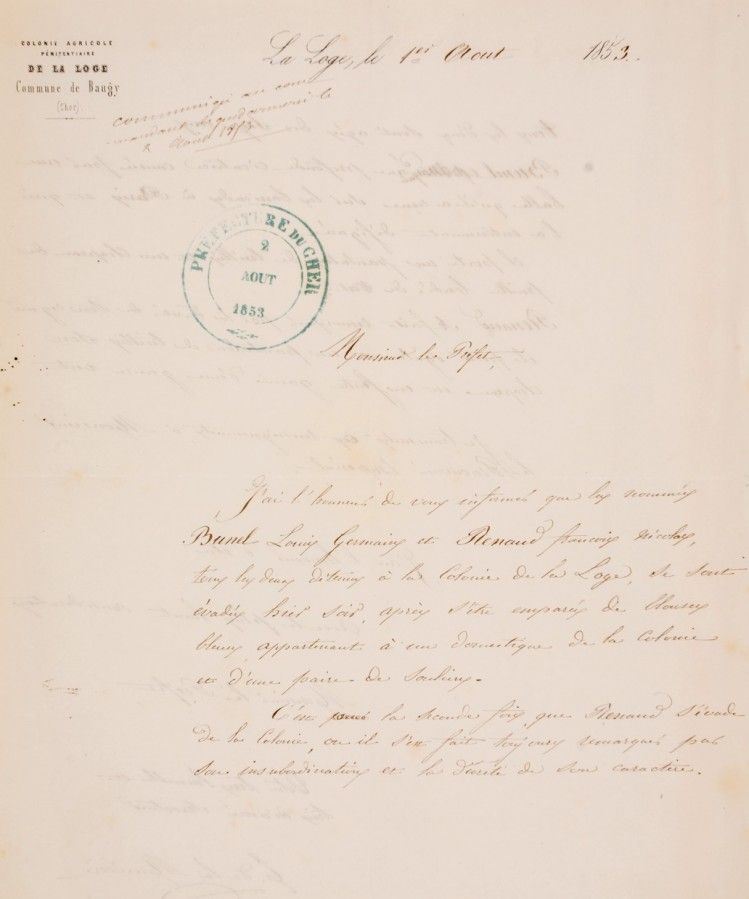 COLONIE AGRICOLE
PÉNITENTIAIRE
DE LA LOGE
Commune de Baugy
(Cher)
La Loge, le 1er Aout 1853.
communiqué au com
mandant de gendarmerie le
2 Aout 1853
PRÉFECTURE DU CHER
2
AOUT
1853
Monsieur le Préfet,
J'ai l'honneur de vous informer que les nommés
Bunel Louis Germain et Renaud françois Nicolas,
tous les deux détenus à la Colonie de la Loge, se sont
évadés hier soir, après s'être emparés de blouses
bleues appartenant à un domestique de la Colonie
et d'une paire de souliers.
C'est la seconde fois que Renaud s'évade
de la Colonie, ou il s'est fait toujours remarquer par
son insubordination et la dureté de son caractère.